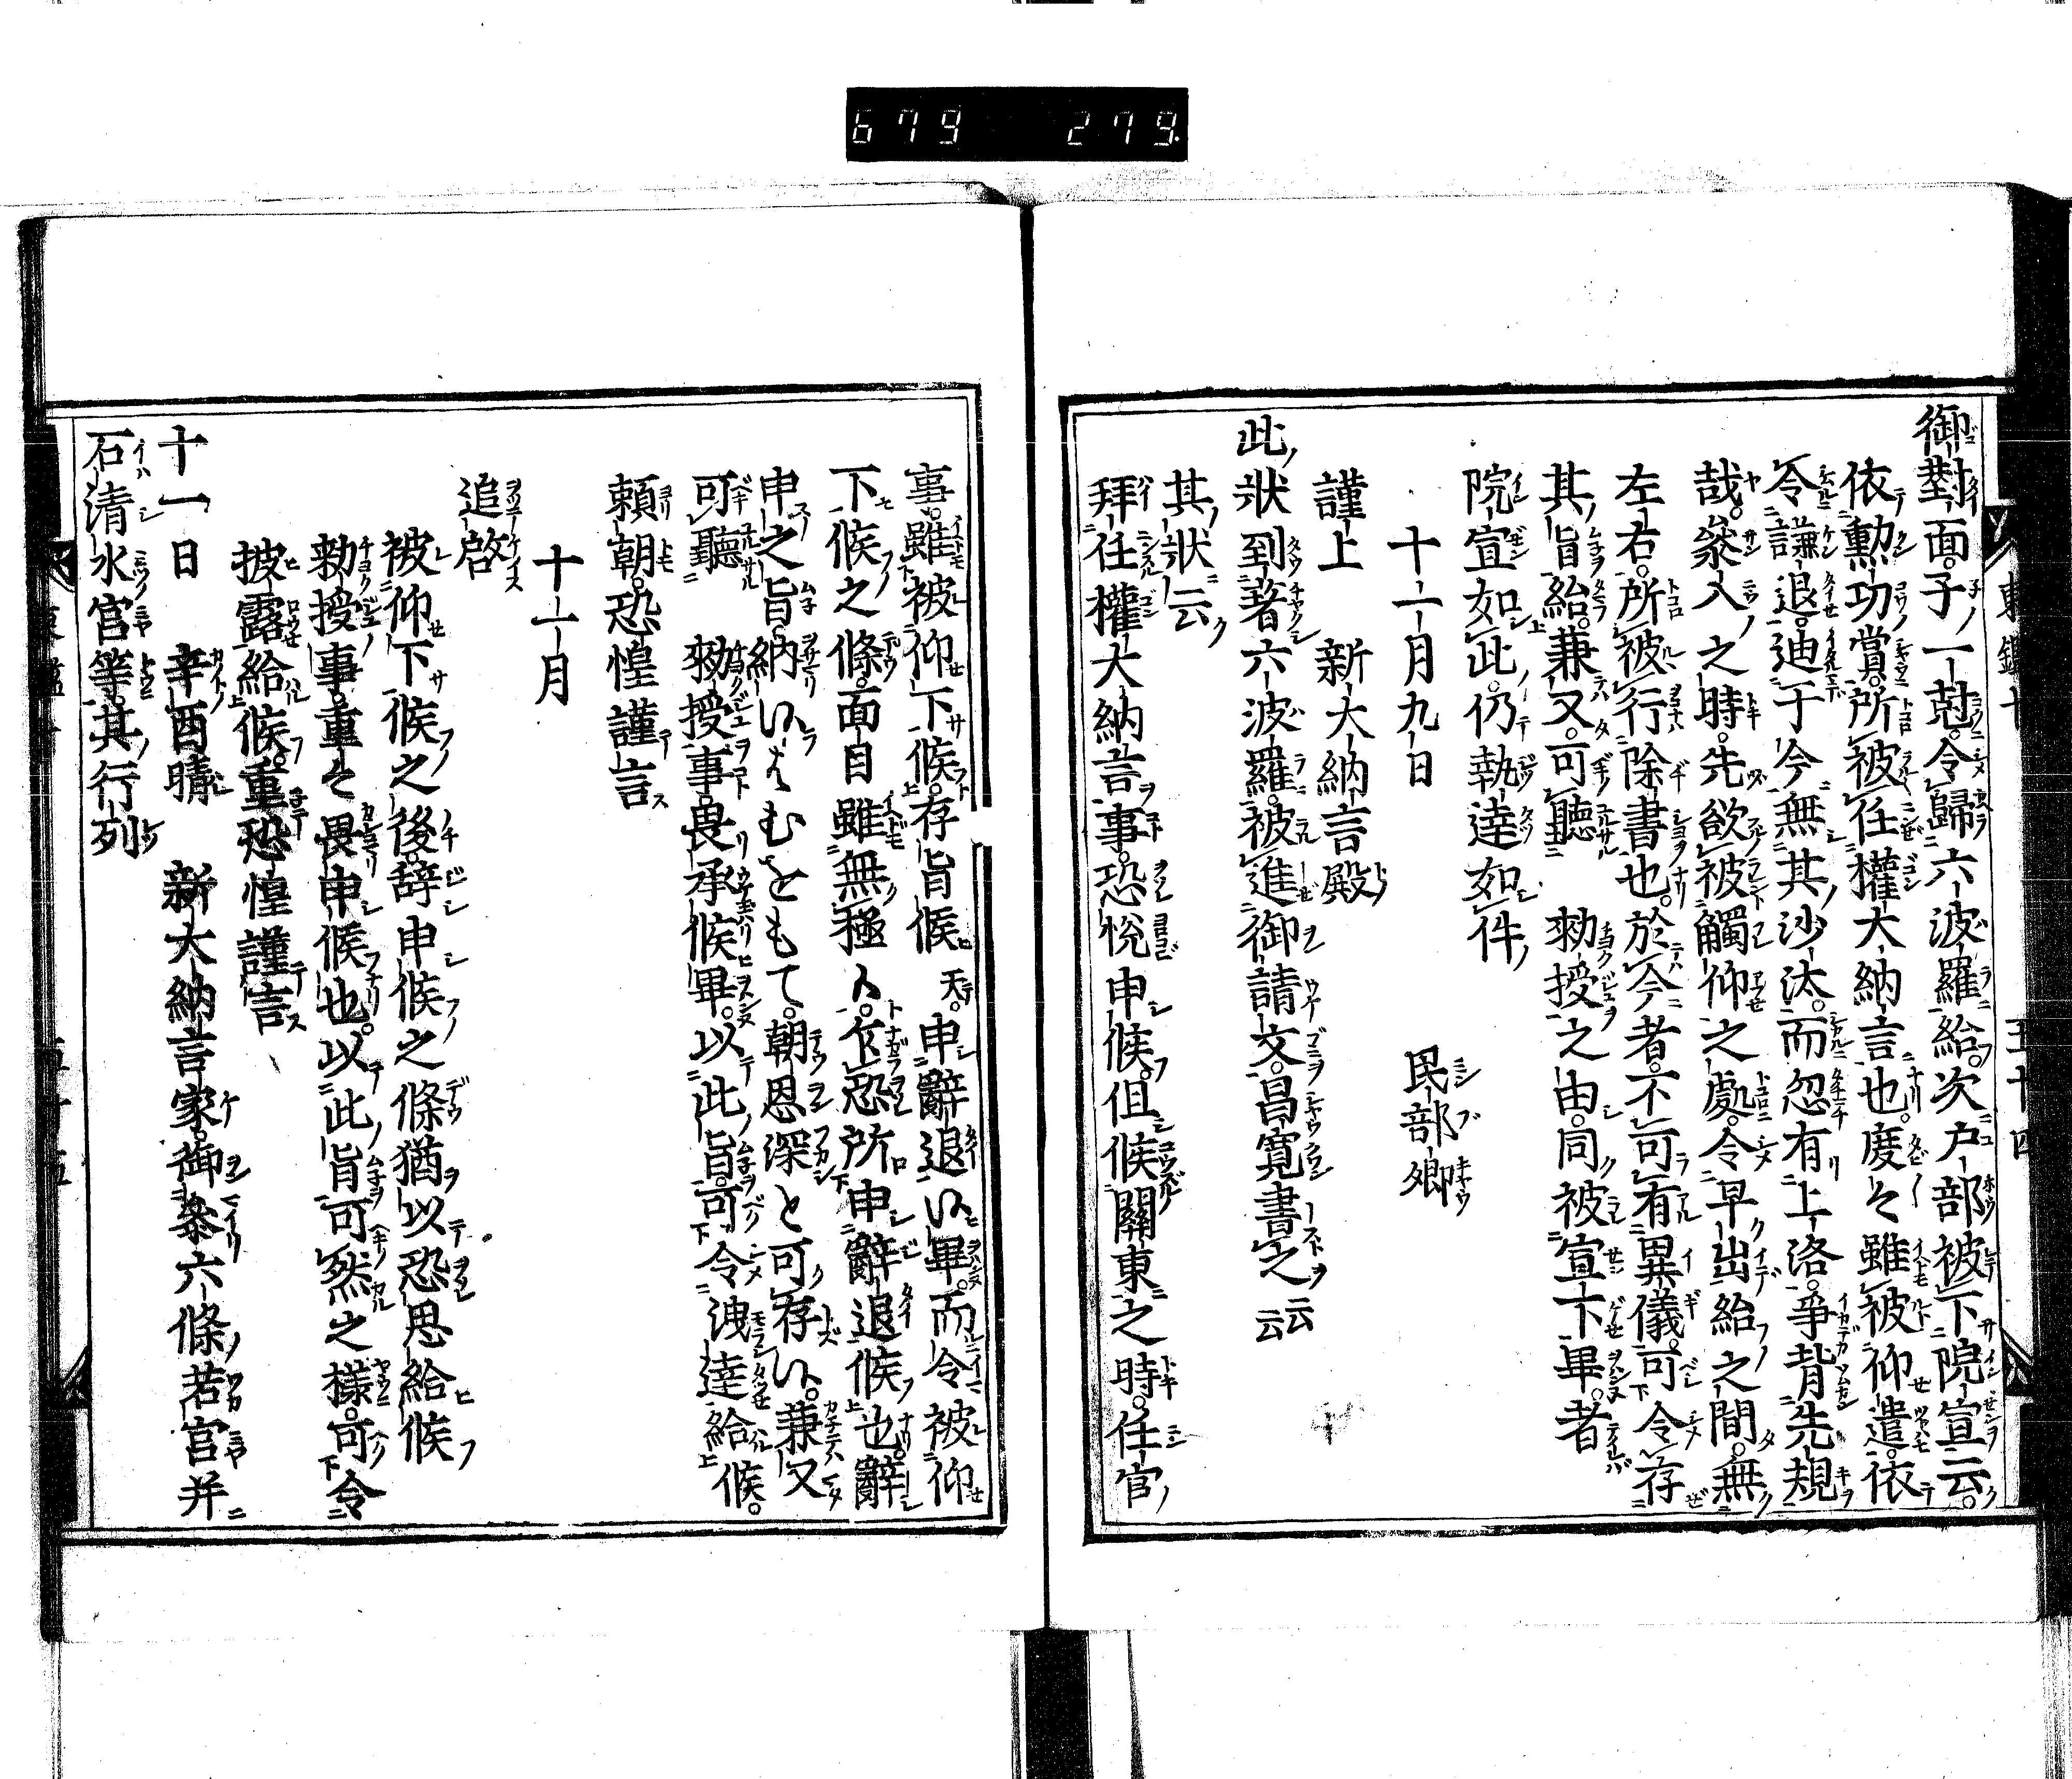 679 279.
御對面。子一尅。令歸六波羅給。次戸部被下院宣云。
依勲功賞。所被任權大納言也。度々雖被仰遣。依
令謙退。迪于今無其沙汰。而忽有上洛。爭背先規
哉。叅入之時。先欲被觸仰之處。令早出給之間。無
左右。所被行除書也。於今者。不可有異儀。可令存
其旨給。兼又。可聽 勅授之由。同被宣下畢。者
院宣如此。仍執達如件
十一月九日 民部卿
謹上 新大納言殿
此狀到著六波羅。被進御請文。昌寛書之云云
其狀云
拜任權大納言事。恐悅申候。但候關東之時。任官
事。雖被仰下候。存旨候天。申辭退候畢。而令被仰
下候之條。面目雖無極候。乍恐所申辭退候也。辭
申之旨。納候はむをもて。朝恩深と可存候。兼又
可聽 勅授事。畏承候畢。以此旨。可令洩達給候。
頼朝。恐惶謹言
十一月
追啓
被仰下候之後。辞申候之條猶以恐思給候
勅授事。重々畏申候也。以此旨可然之樣。可令
披露給候。重恐惶謹言
十一日 辛酉晴 新大納言家。御叅六條若宮并
石清水宮等。其行列